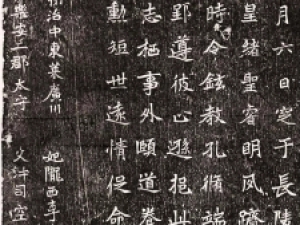 月六日窆于長陵
皇緒聖睿明夙躋
時令鉉教孔脩端
遵彼心遜挹此
志栖事外頤道養
勳短世遠情促命
治中東萊廣川 妃隴西李
樂安二郡太守 父沖司空